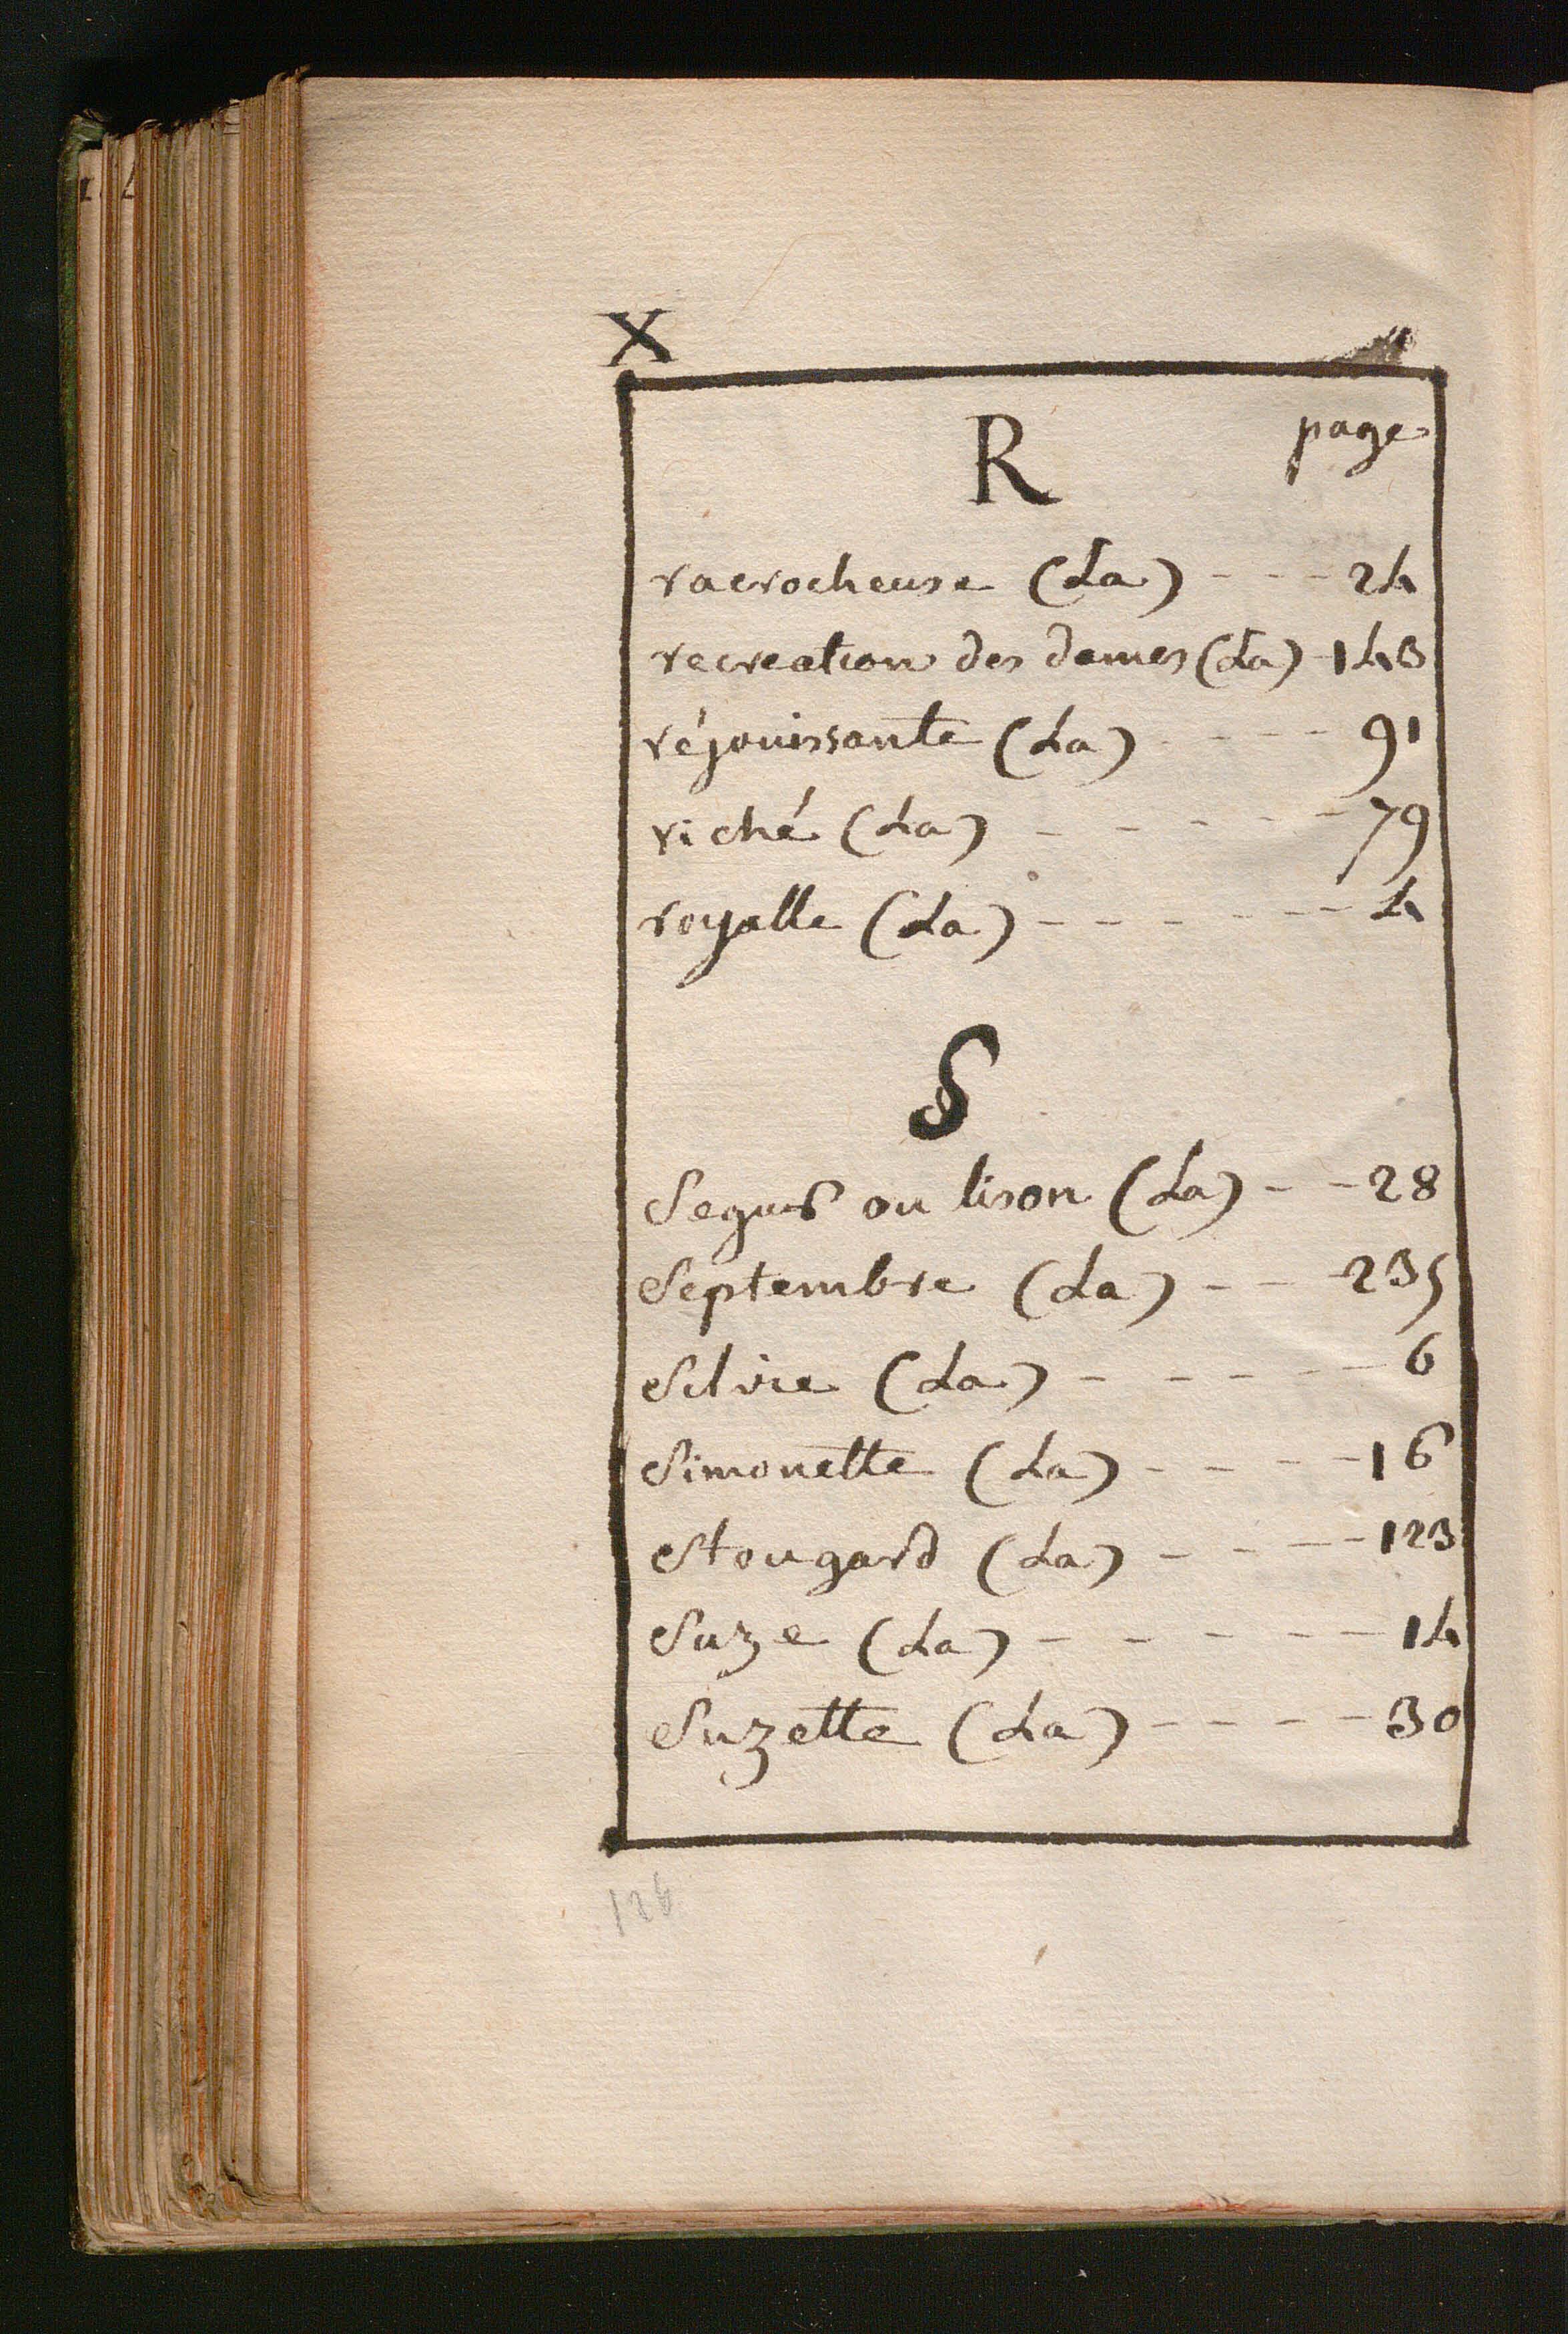 X
R page
racrocheuse (La) - - - 24
recreation des dames (La) - 143
réjouissante (La) - - - - 91
riché (La) - - - - - 79
royalle (La) - - - - - - 4
S
Segur ou lison (La) - - 28
Septembre (La) - - - 235
Silvie (La) - - - - - 6
Simonette (La) - - - - 16
Stougard (La) - - - - 123
Suze (La) - - - - - - 14
Suzette (La) - - - - - 30
126